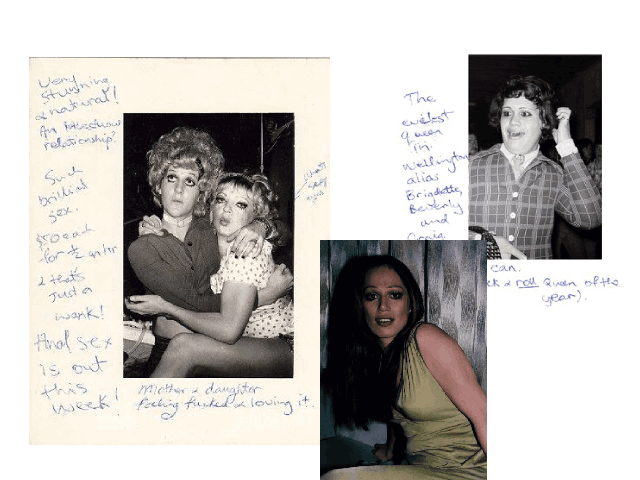 Very
stunning
& natural!
An
relationship?
Such
brilliant
sex.
for ½ an hr
& that's
just a
wank!
Anal sex
is out
this
week!
Mother & daughter
fucked & loving it.
The
evilest
queen
in
Wellington
alias
Brigdette,
Beverly
and
Craig
can.
ck & roll Queen of the
year).